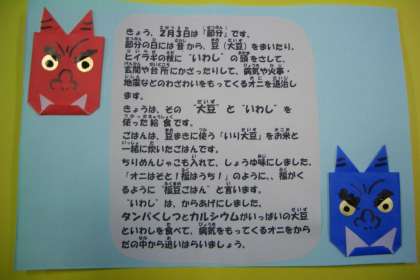 きょう、2月3日は「節分」です。
節分の日には昔から、豆（大豆）を まいたり、
ヒイラギの枝に "いわし" の頭をさして、
玄関や台所にかざったりして、病気や火事・
地震などのわざわいをもってくるオニを退治し
ます。
きょうは、その "大豆" と "いわし" を
使った給食です。
ごはんは、豆まきに使う「いり大豆」をお米と
一緒に炊いたごはんです。
ちりめんじゃこも入れて、しょうゆ味にしました。
「オニはそと！福はうち！」のように、、福がく
るように "福豆ごはん" と言います。
"いわし" は、からあげにしました。
タンパくしつとカルシウムがいっぱいの大豆
といわしを食べて、病気をもってくるオニをから
だの中から追いはらいましょう。